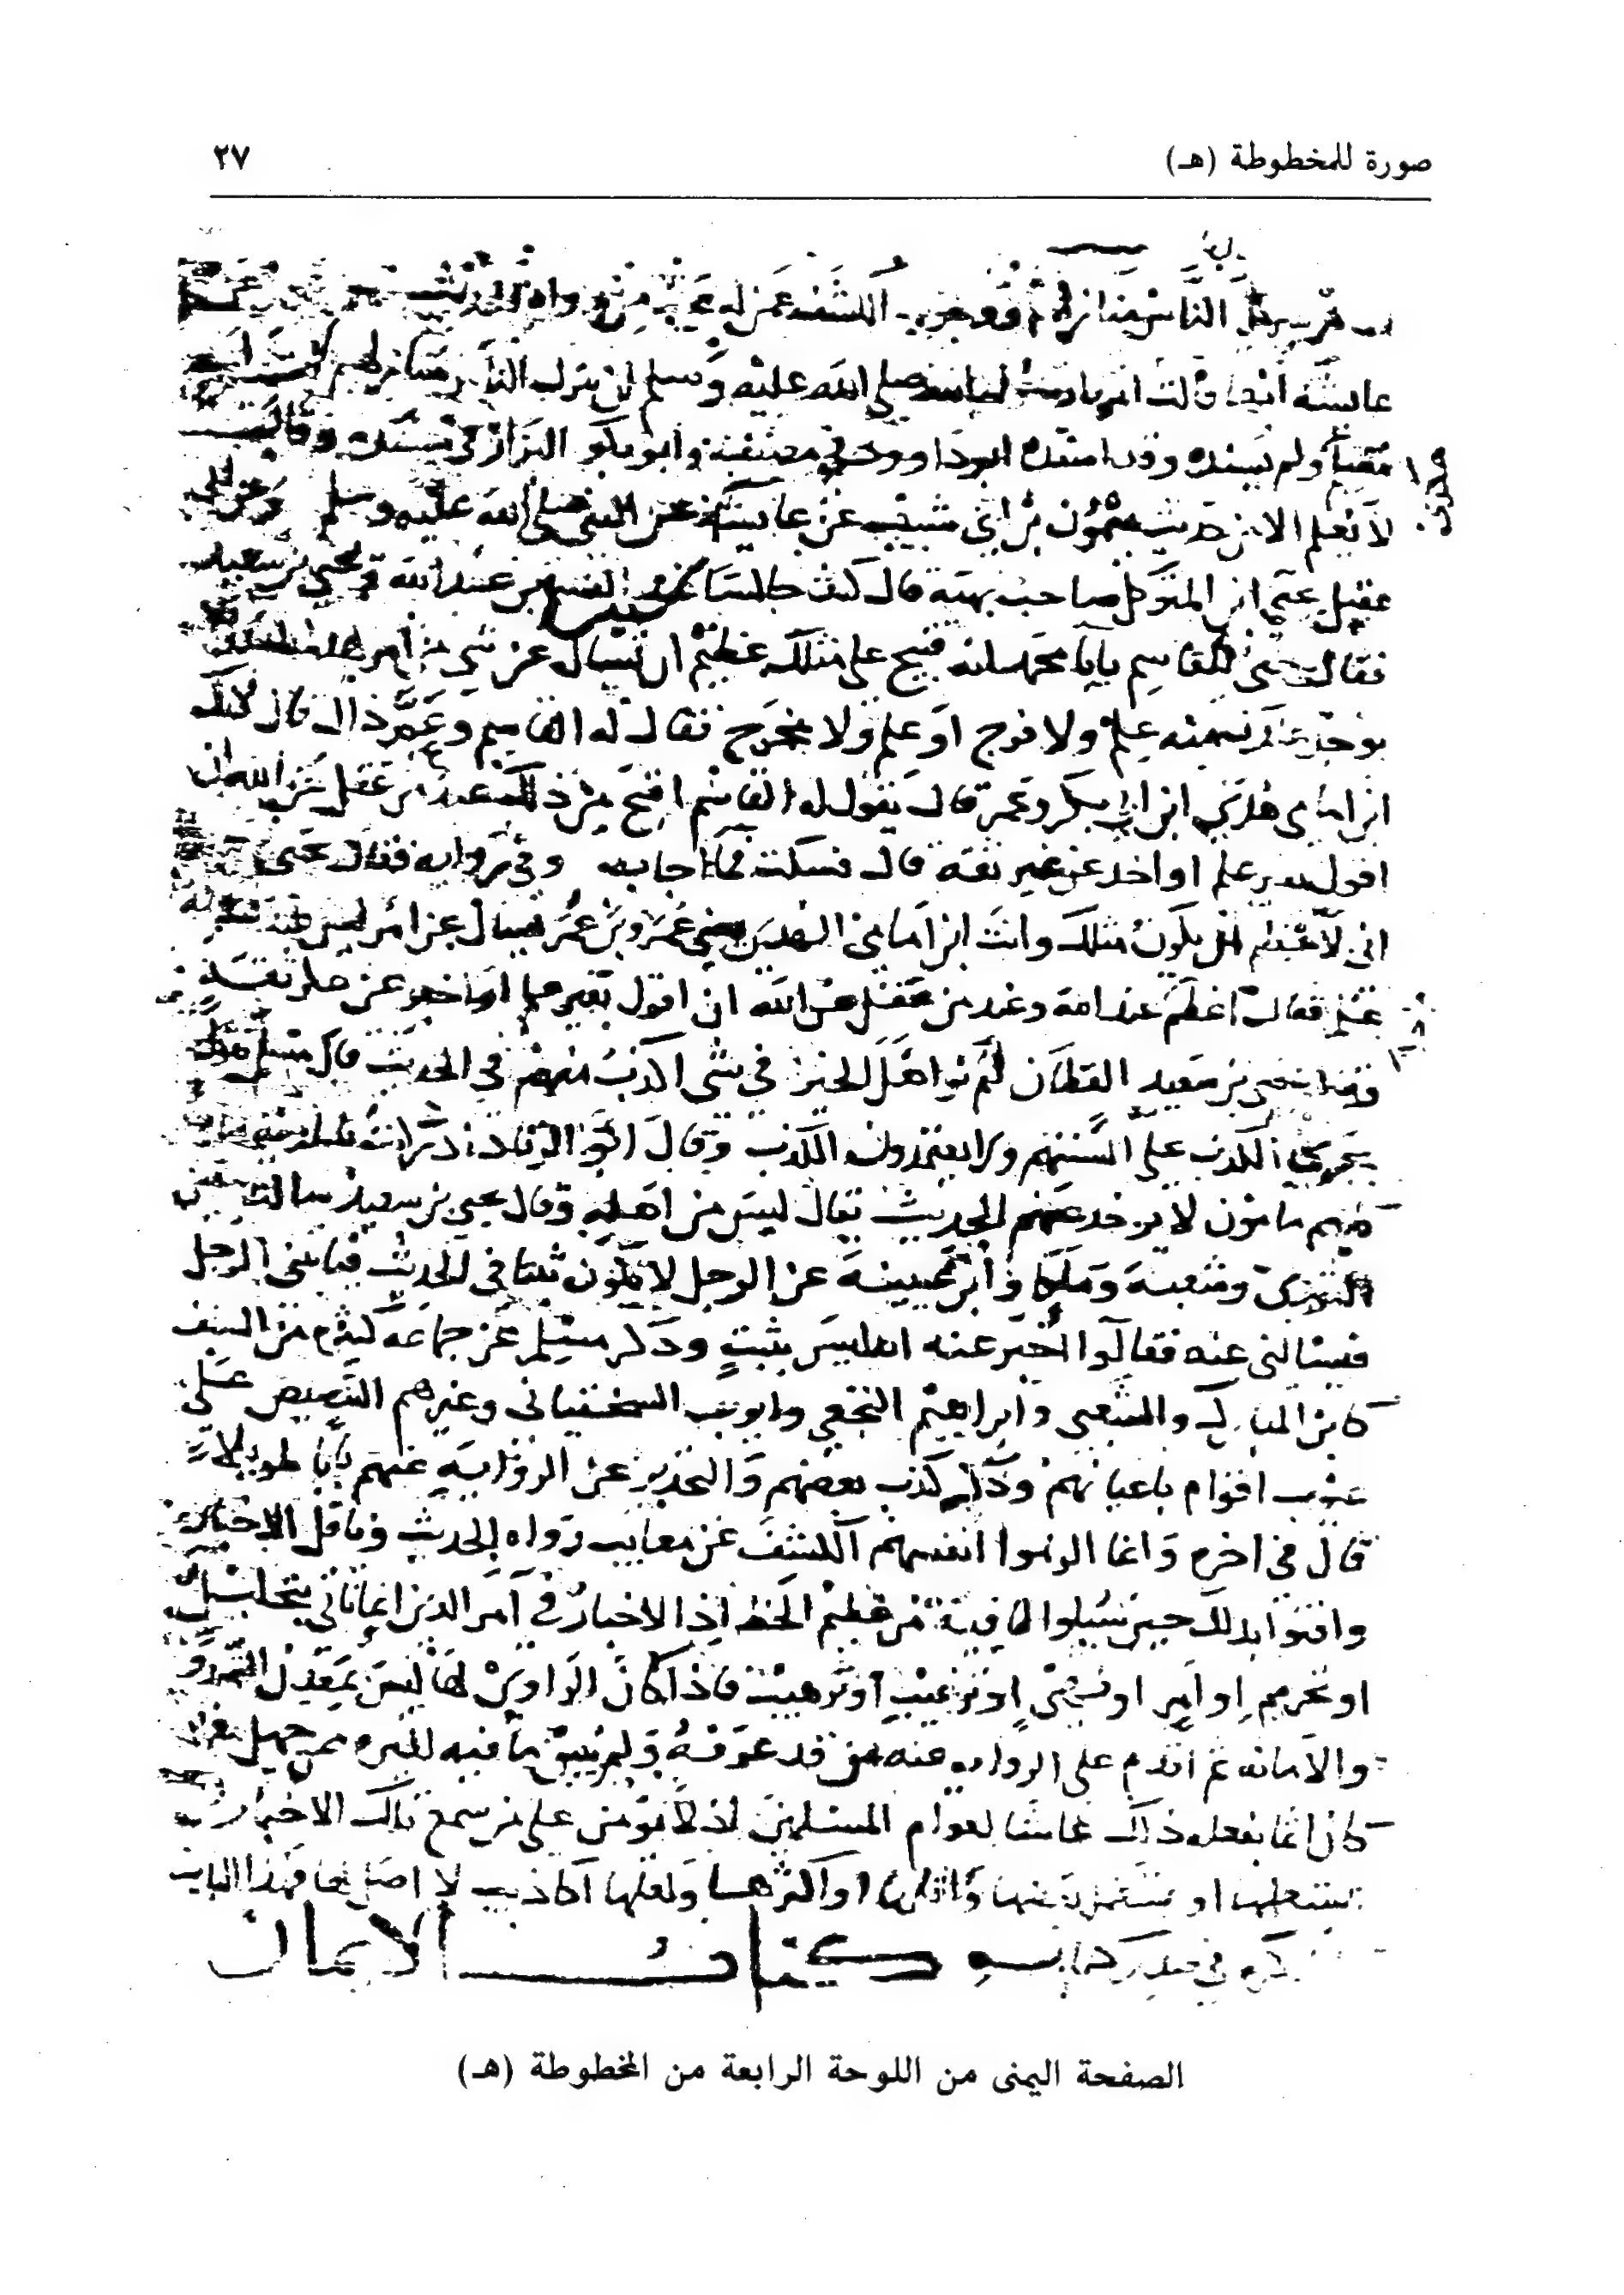 صورة للمخطوطة (هـ) ٢٧
الناس منازلهم ووجوب الكشف عمن له عيب من رواة الحديث
عايشة انها قالت امرنا رسول الله صلى الله عليه وسلم ان ننزل الناس منازلهم
ولم يسنده وقد اسنده ابو داوود في مصنفه وابو بكر البزار في مسنده وقال
لا نعلم الا من حديث ميمون بن ابي شبيب عن عايشة عن النبي صلى الله عليه وسلم وعن ابي
عقيل يحيى بن المتوكل صاحب بهية قال كنت جالسا عند القسم بن عبد الله ويحيى بن سعيد
فقال يحيى للقاسم يابا محمد انه قبيح على مثلك عظيم ان تسال عن شي من امر هذا الدين
يوجد عندك منه علم ولا فرج او علم ولا مخرج فقال له القاسم وعم ذاك قال لانك
ابن امامي هدى ابن ابي بكر وعمر قال يقول له القاسم اقبح من ذلك عند من عقل عن الله ان
اقول بغير علم او اخذ عن غير ثقة قال فسكت فما اجابه وفي رواية فقال يحيى
اني لاعظم ان يكون مثلك وانت ابن امامي الهدى يعني عمر وبن عمر تسال عن امر ليس عندك فيه
علم فقال اعظم عند الله وعند من عقل عن الله ان اقول بغير علم او اخبر عن غير ثقة
يحيى بن سعيد القطان لم نر اهل الخير في شي اكذب منهم في الحديث قال مسلم يقول
يجري الكذب على السنتهم ولا يتعمدون الكذب وقال ابو الزناد ادركت بالمدينة ماية
كلهم مامون لا يوخذ عنهم الحديث يقال ليس من اهله وقال يحيى بن سعيد سالت سفين
الثوري وشعبة ومالكا وابن عيينة عن الرجل لا يكون ثبتا في الحديث فياتني الرجل
فيسالني عنه فقالوا اخبر عنه انه ليس بثبت وذكر مسلم عن جماعة كثيرة من السلف
كابن المبارك والشعبي وابراهيم النخعي وايوب السختياني وغيرهم التنصيص على
عيوب اقوام باعيانهم وذكر كذب بعضهم والتحذير عن الرواية عنهم بابا طويلا
قال في اخره وانما الزموا انفسهم الكشف عن معايب رواة الحديث وناقلي الاخبار
وافتوا بذلك حين سيلوا لما فيه من عظيم الخطر اذ الاخبار في امر الدين انما تاتي بتحليل
او تحريم او امر او نهي او ترغيب او ترهيب فاذا كان الراوي لها ليس بمعدن للصدق
والامانة ثم اقدم على الرواية عنه من قد عرفه ولم يبين ما فيه لغيره ممن جهل معرفته
كان اثما بفعله ذلك غاشا لعوام المسلمين اذ لا يومن على من سمع تلك الاخبار ان
يستعملها او يستعمل بعضها واقلها او اكثرها ولعلها اكاذيب لا اصل لها فهذا الباب
كتاب الايمان
الصفحة اليمنى من اللوحة الرابعة من المخطوطة (هـ)